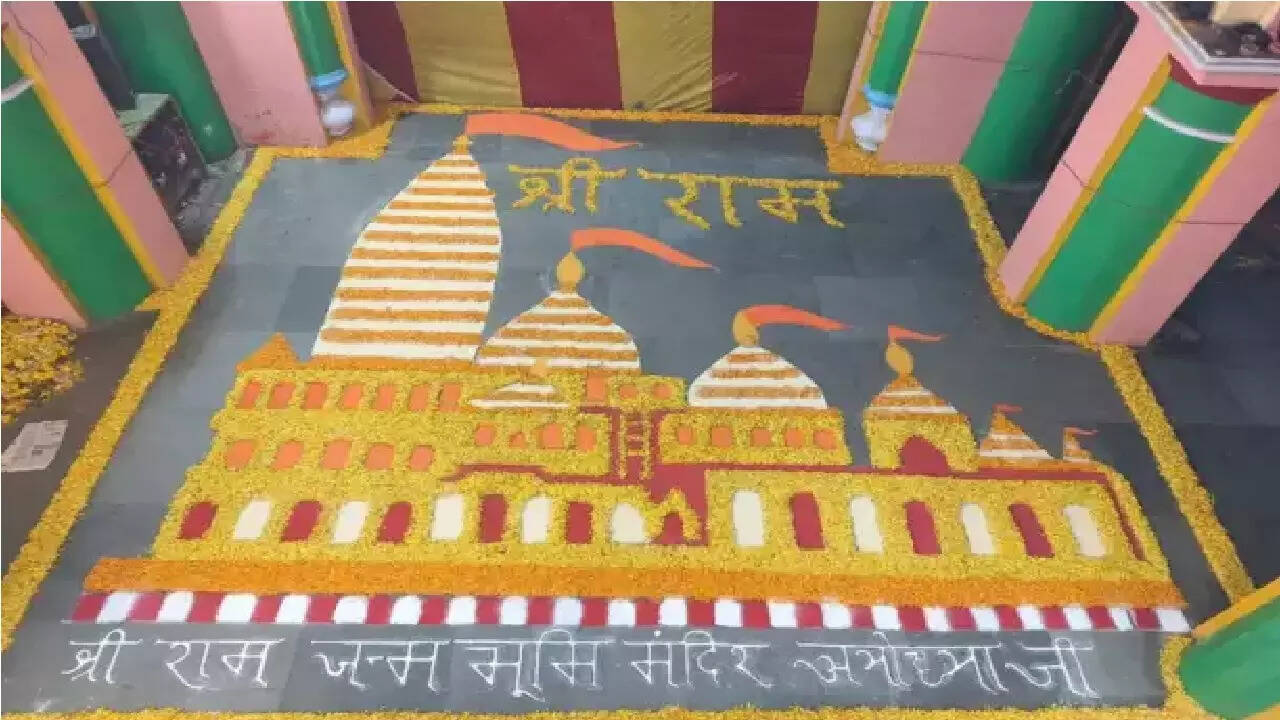 श्री राम
श्री राम जन्म भूमि मंदिर अयोध्या जी